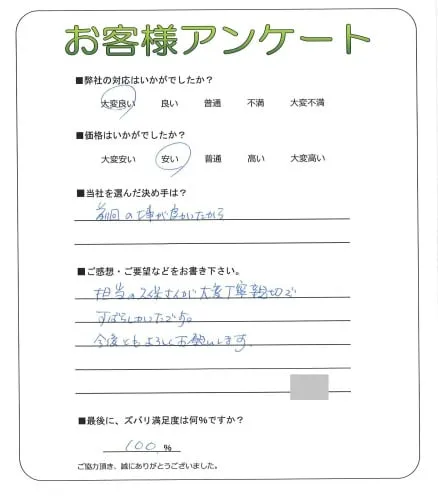 お客様アンケート
■弊社の対応はいかがでしたか？
大変良い 良い 普通 不満 大変不満
■価格はいかがでしたか？
大変安い 安い 普通 高い 大変高い
■当社を選んだ決め手は？
前回の仕事が良かったから
■ご感想・ご要望などをお書き下さい。
担当の久保さんが大変丁寧親切で
すばらしかったです。
今後ともよろしくお願いします。
■最後に、ズバリ満足度は何%ですか？
100 %
ご協力頂き、誠にありがとうございました。